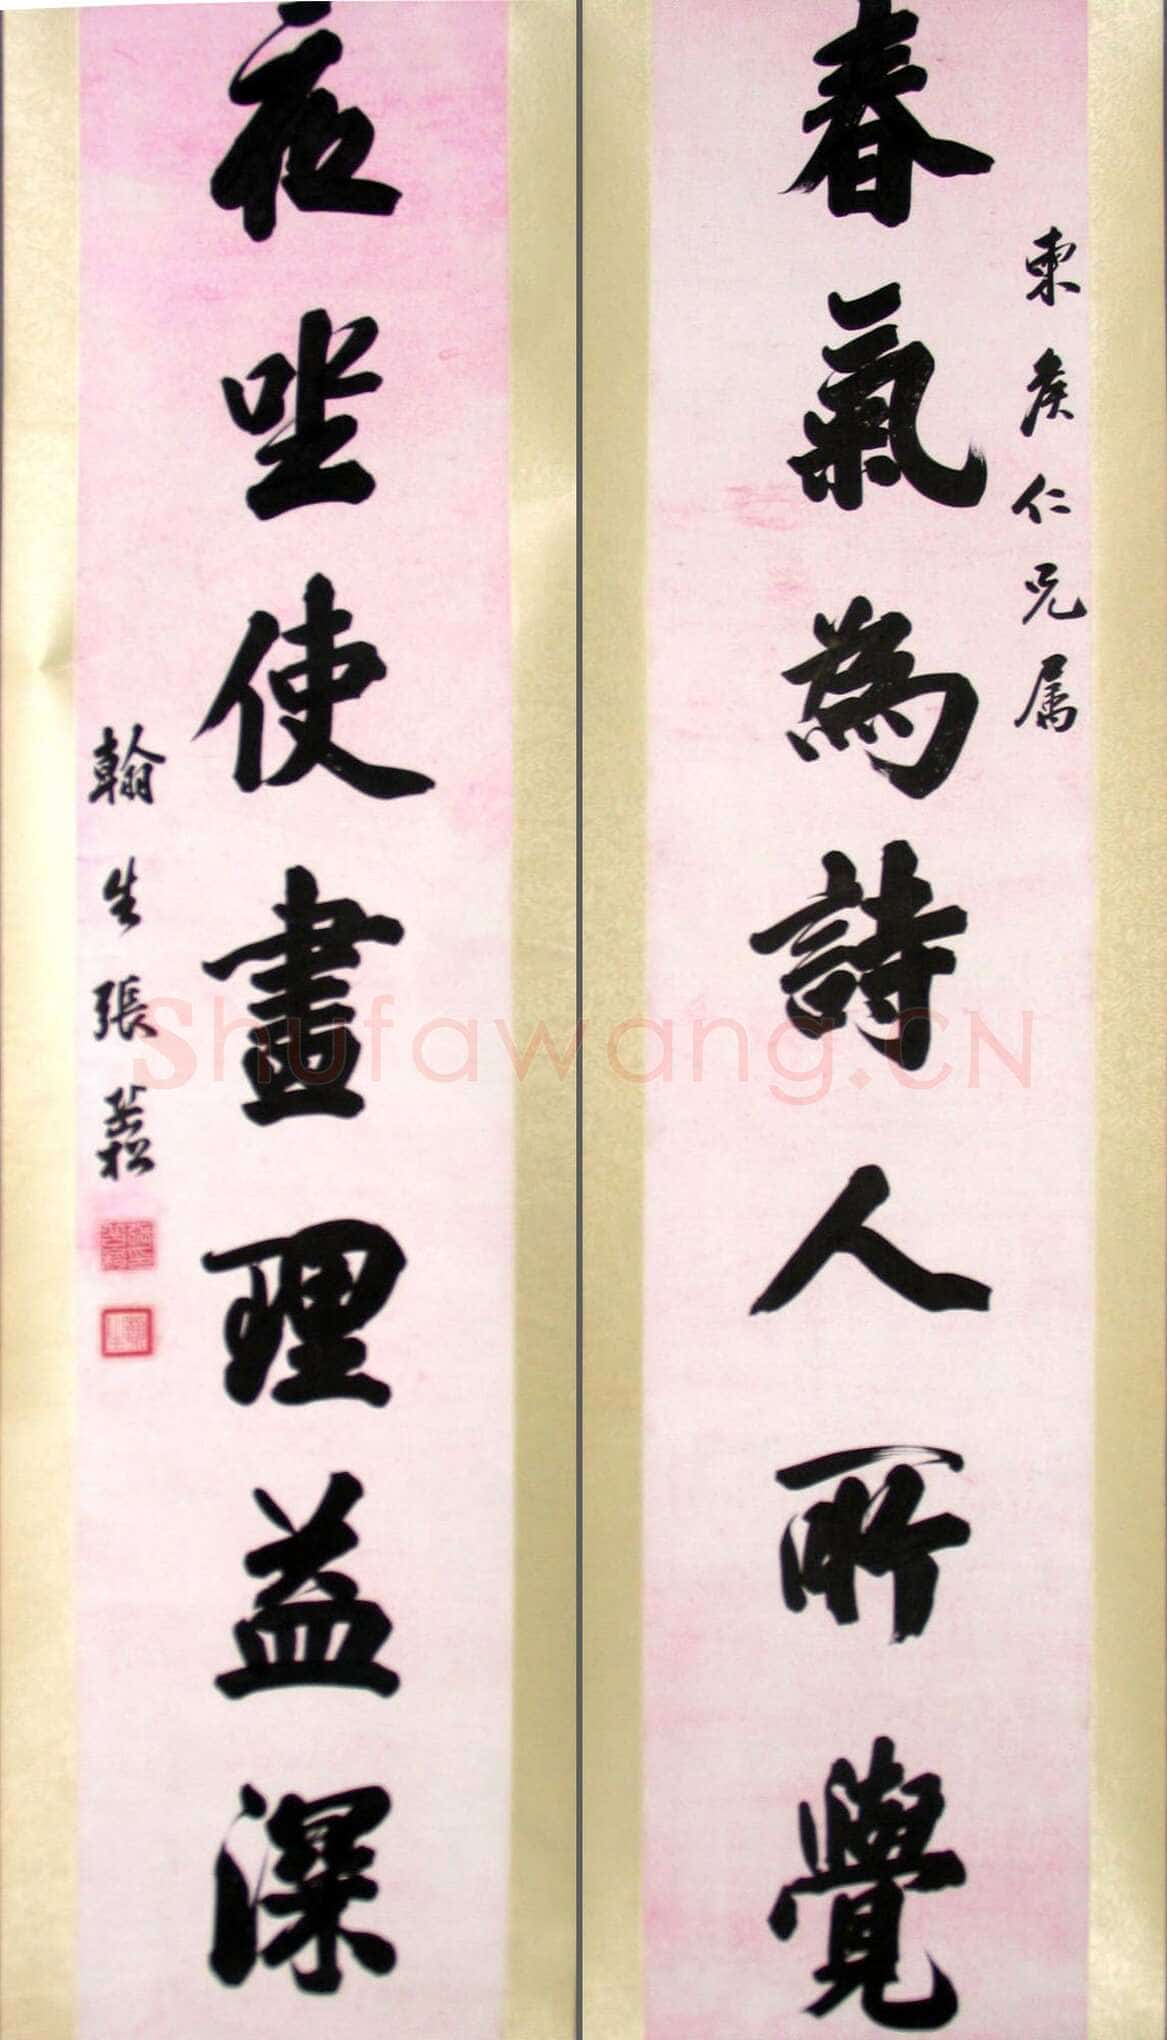 東侯仁兄属
春氣為詩人所覺
夜坐使畫理益深
翰生張蕊
Shufawang.CN